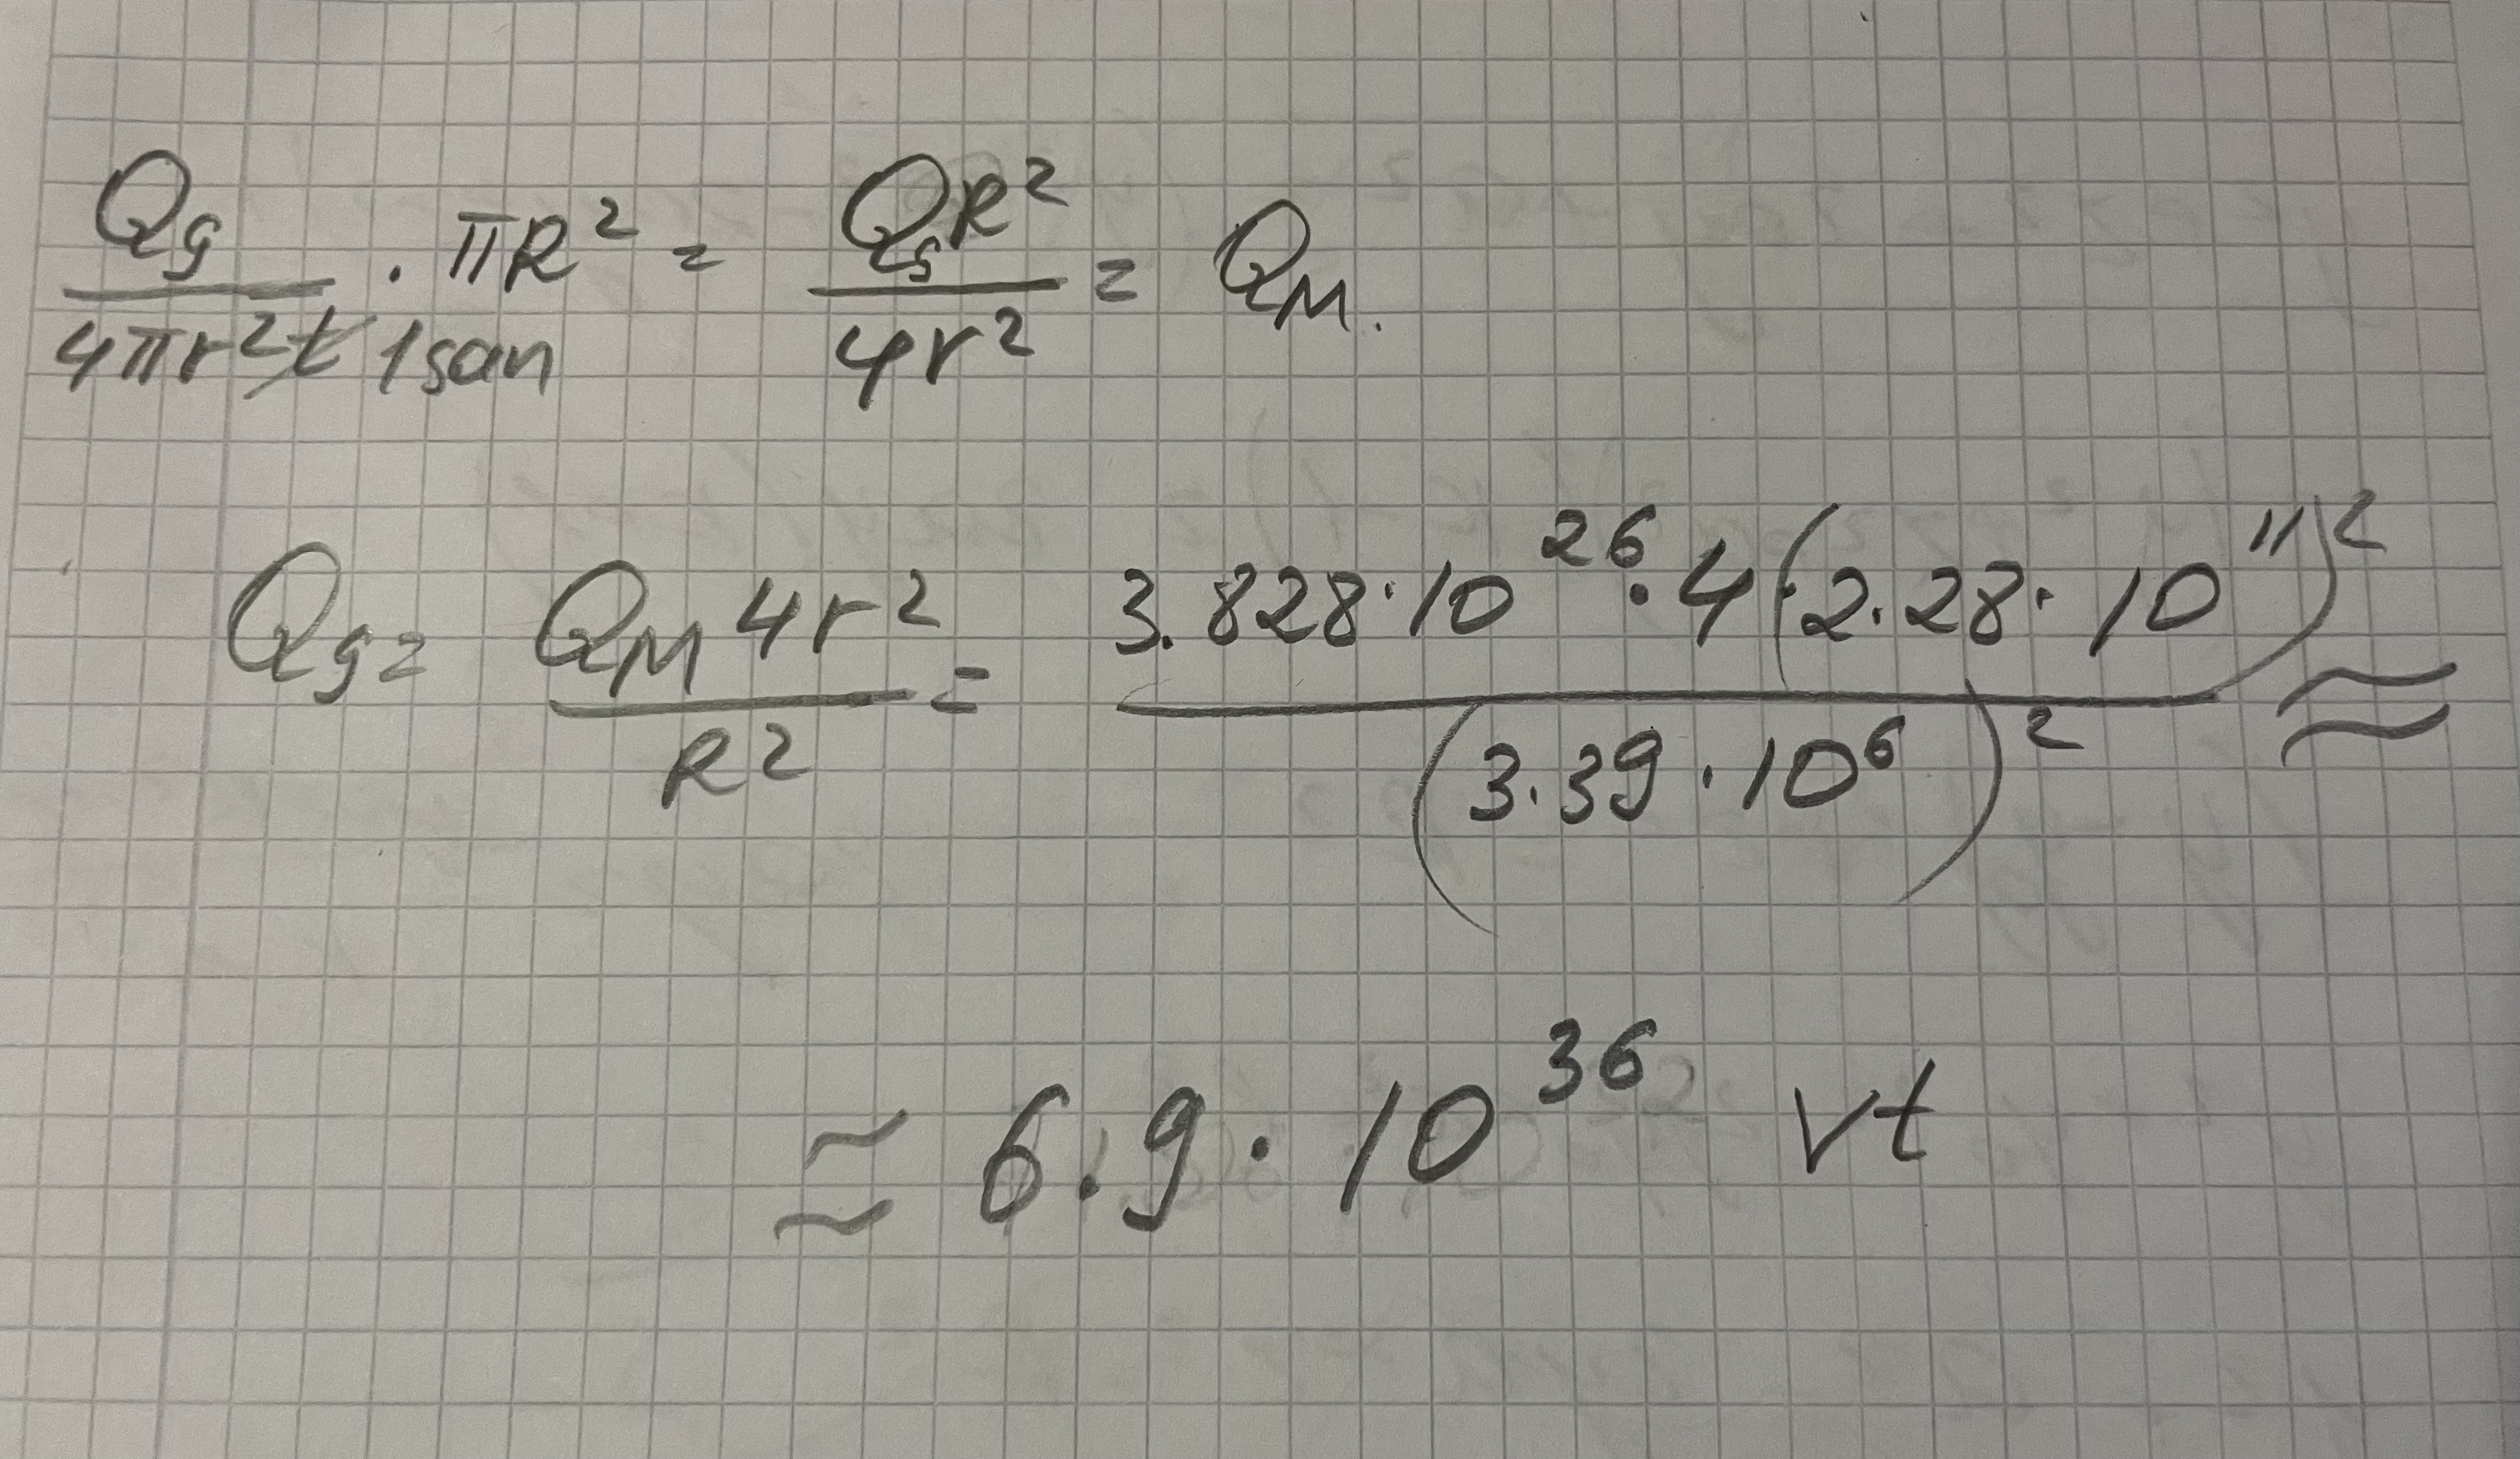 Qg / 4πr²t 1san · πR² = QsR² / 4r² = QM.
Qg = QM4r² / R² = 3.828·10²⁶·4(2.28·10¹¹)² / (3.39·10⁶)² ≈
≈ 6.9·10³⁶ vt